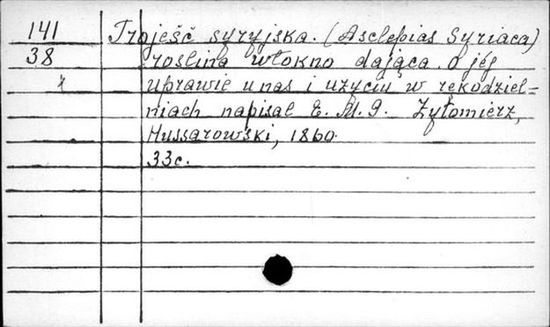 141 Trojesć syryjska. (Asclepias Syriaca)
38 roslina włokno dająca. o jéj
uprawie u nas i użyciu w rękodziel-
niach napisal E. M. G. Żytomierz,
Hussarowski, 1860.
33c.